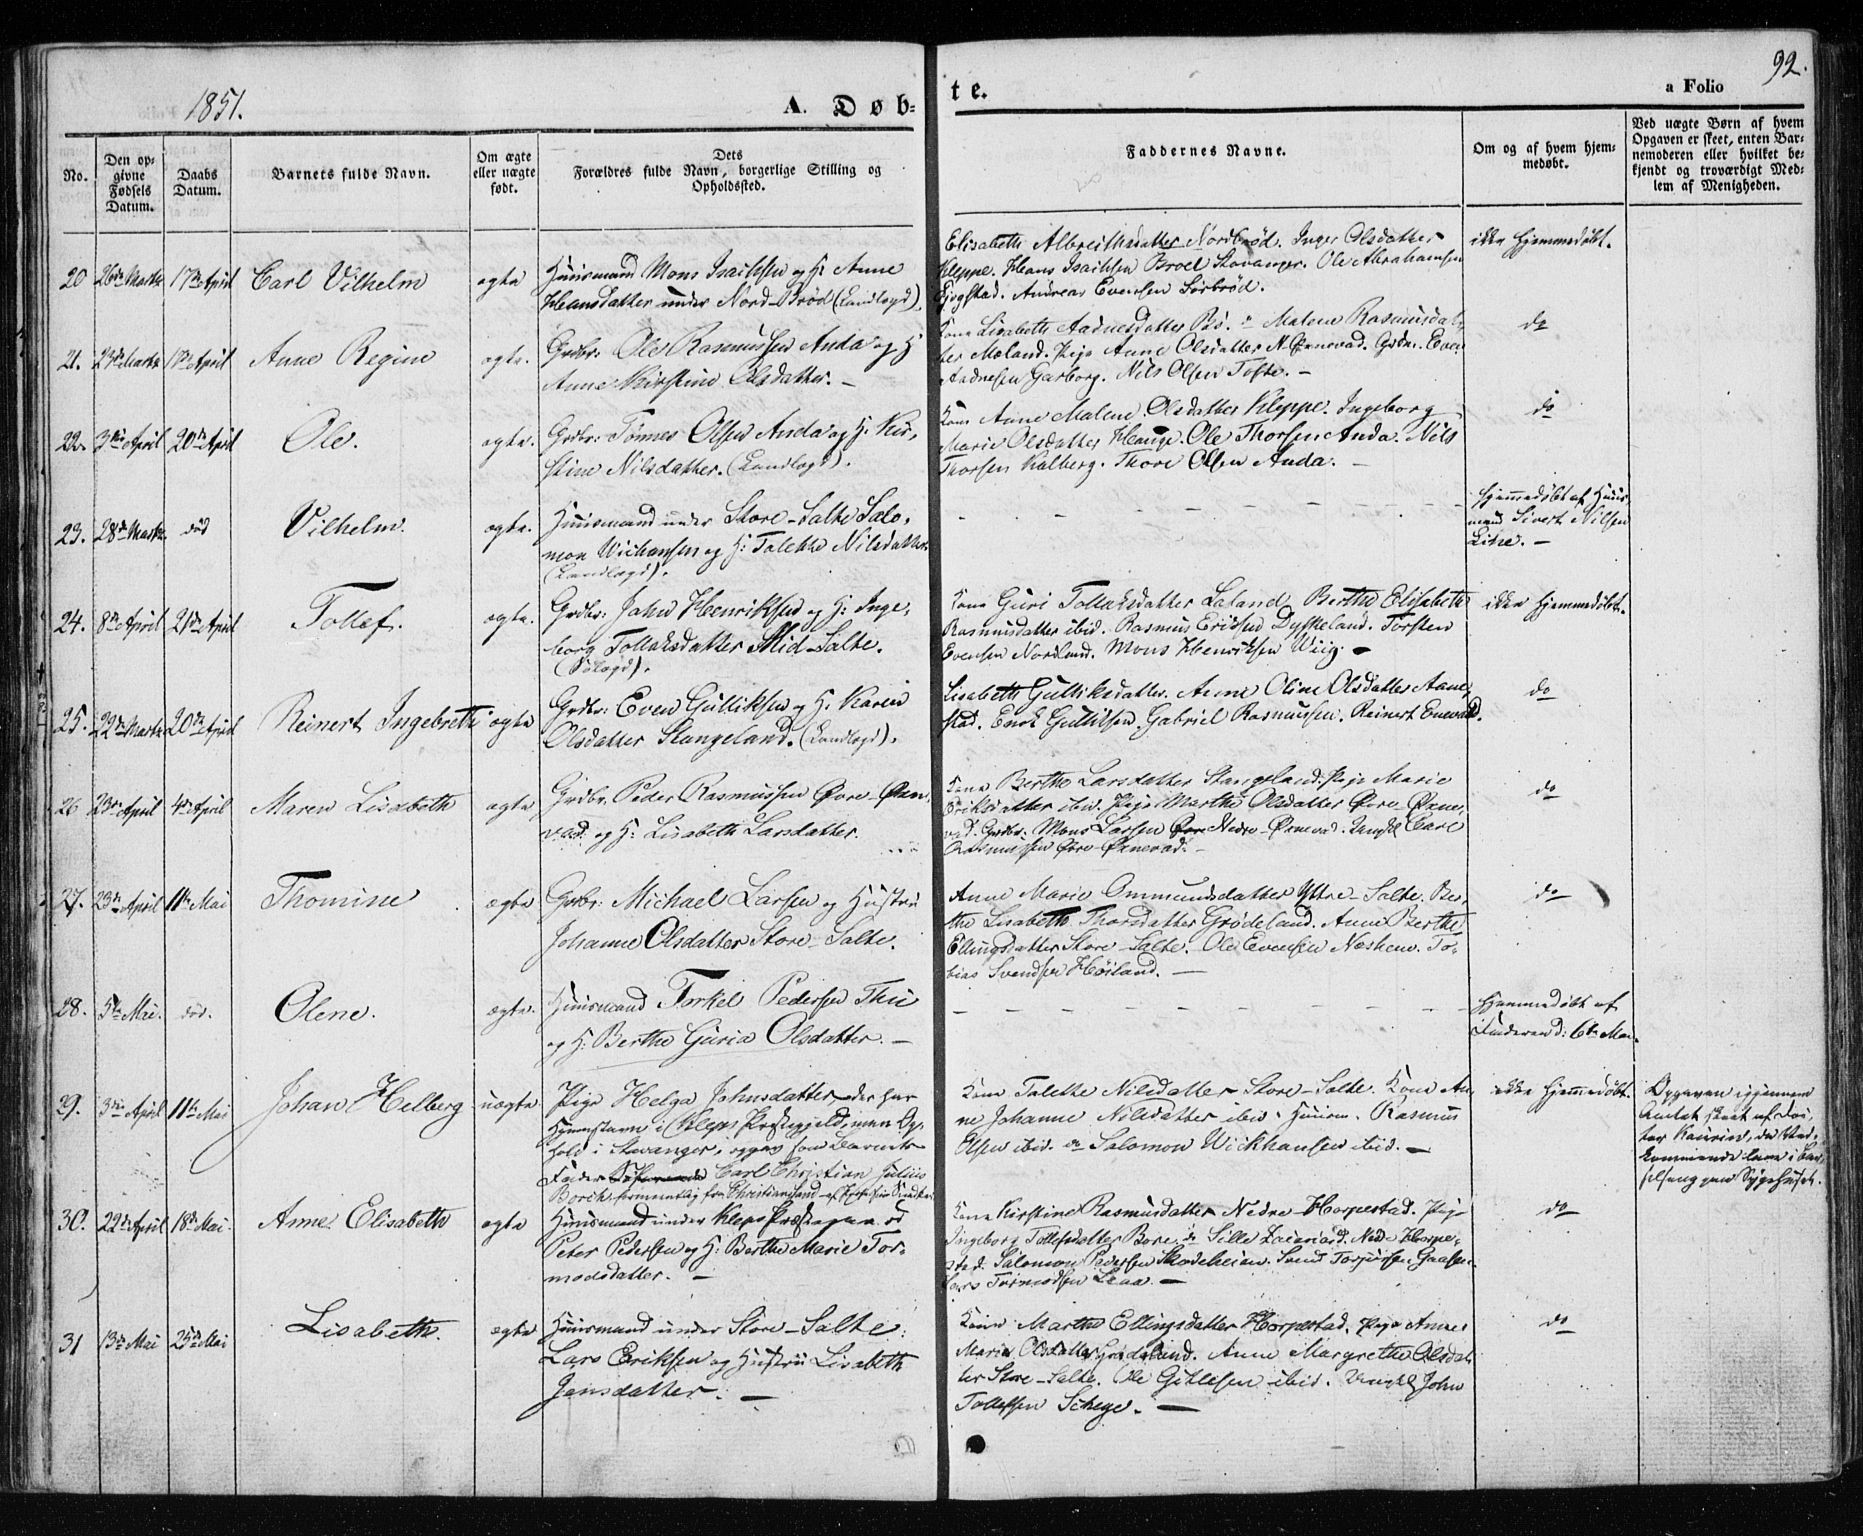 1851.
A. Døb-
te.
92.
a Folio
No.
Den op-
givne
Fødsels
Datum.
Daabs
Datum.
Barnets fulde Navn.
Om ægte
eller uægte
født.
Dets
Forældres fulde Navn, borgerlige Stilling og
Opholdssted.
Faddernes Navne.
Om og af hvem hjem-
medøbt.
Ved uægte Børn af hvem
Opgaven er skeet, enten Bar-
nemoderen eller hvilket be-
kjendt og troværdigt Med-
lem af Menigheden.
20 26de Marts 17de April Carl Vilhelm ægte
Huusmand Mons Isachsen og H: Anne
Hansdatter under Nord-Brød (Landlagd).
Elisabeth Albreithsdatter Nordbrød. Inger Olsdatter
Kleppe. Hans Isachsen Broel Stavanger. Ole Abrahamsen
Fjogstad. Andreas Evensen Sørbrød.
ikke hjemmedøbt.
21. 23de Marts 18de April Anne Regine ægte.
Grdbr: Ole Rasmussen Anda og H
Anne Kirstine Olsdatter. –
Kone Lisabeth Aadnesdatter Bø. do Malene Rasmusdat-
ter Mæland. Pige Anne Olsdatter N. Øxnevad. Grdbr. Even
Aadnesen Garborg. Nils Olsen Tofte. –
do
22. 3die April 20de April Ole. ægte.
Grdbr: Tønnes Olsen Anda og H: Kir-
stine Nilsdatter. (Landlagd).
Kone Anne Malene Olsdatter Kleppe. Ingeborg
Marie Olsdatter Hauge. Ole Thorsen Anda. Nils
Thorsen Kalberg. Thore Olsen Anda. –
do
23. 28de Marts død Vilhelm. ægte.
Huusmand under Store-Salte Salo-
mon Wichansen og H: Talette Nilsdatter.
(Landlagd).
– – – – – – – – – –
hjemmedøbt af Huus-
mand Sivert Nilsen
Line. –
24. 8de April 21de April Tollef. ægte.
Grdbr: John Henriksen og H: Inge-
borg Tollaksdatter Mid-Salte.
(Sølagd).
Kone Guri Tollaksdatter Laland. Berthe Elisabeth
Rasmusdatter ibid. Rasmus Eriksen Dysjeland. Torsten
Evensen Nordland. Mons Henriksen Wiig. –
ikke hjemmedøbt.
25. 22de Marts 20de April Reinert Ingebreth ægte
Grdbr: Even Gulliksen og H: Karen
Olsdatter Stangeland. (Landlagd).
Lisabeth Gulliksdatter. Anne Oline Olsdatter Aane-
stad. Enok Gulliksen. Gabriel Rasmussen. Reinert Enevald.
do
26 23de April 4de April Maren Lisabeth ægte
Grdbr. Peder Rasmussen Øvre-Øxne-
vad. og H: Lisabeth Larsdatter.
Kone Berthe Larsdatter Stangeland. Pige Marie
Eriksdatter ibid. Pige Marthe Olsdatter Øvre-Øxne-
vad. Grdbr: Mons Larsen Nedre-Øxnevad. Ungkl Carl
Rasmussen Øvre-Øxnevad. –
do
27. 23de April 11te Mai Thomine ægte
Grdbr: Michael Larsen og Hustru
Johanne Olsdatter Store-Salte.
Anne Marie Ommundsdatter Yttre-Salte. Ber-
the Lisabeth Thorsdatter Grødeland. Anne Berthe
Ellingsdatter Store-Salte. Ole Evensen Næsheim. To-
bias Svendsen Høiland. –
do
28. 5te Mai. død. Olene. ægte.
Huusmand Torkel Pedersen Thu
og H: Berthe Guria Olsdatter. –
– – – – – – – – – –
hjemmedøbt af
Faderen d: 6te Mai.
29. 3die April 11te Mai Johan Helberg uægte
Pige Helga Johnsdatter, der har
Hjemstavn i Kleps Præstegjeld, men Op-
hold i Stavanger, opgav som Barnets
Fader Carl Christian Julius
Borch fra Christianssand
Kone Talette Nilsdatter Store-Salte. Kone An-
ne Johanne Nilsdatter ibid. Huusm. Rasmus
Olsen ibid. do Salomon Wickhansen ibid. –
ikke hjemmedøbt.
Opgaven igjennem
Attest skeet af Doc-
tor Kaurin, da Ved-
kommende laae i Bar-
selseng paa Sygehuset.
30. 22de April 18de Mai. Anne Elisabeth ægte
Huusmand under Kleps Præstegaard
Peter Pedersen og H: Berthe Marie Tor-
modsdatter. –
Kone Kirstine Rasmusdatter Nedre-Horpestad. Pige
Ingeborg Tollefsdatter Bore. do Sille Zachariasd. Nedre Horpe-
stad. Salomon Pedersen Skadeheien. Svend Torjussen Gaasen.
Lars Tormodsen Laa. –
do
31 13de Mai 25de Mai Lisabeth. ægte
Huusmand under Store-Salte:
Lars Eriksen og Hustru Lisabeth
Jonsdatter. –
Kone Marthe Ellingsdatter Horpestad. Pige Anne
Marie Olsdatter Grødeland. Anne Margrethe Olsdat-
ter Store-Salte. Ole Gitlesen ibid. Ungkl John
Tollefsen Schege. –
do